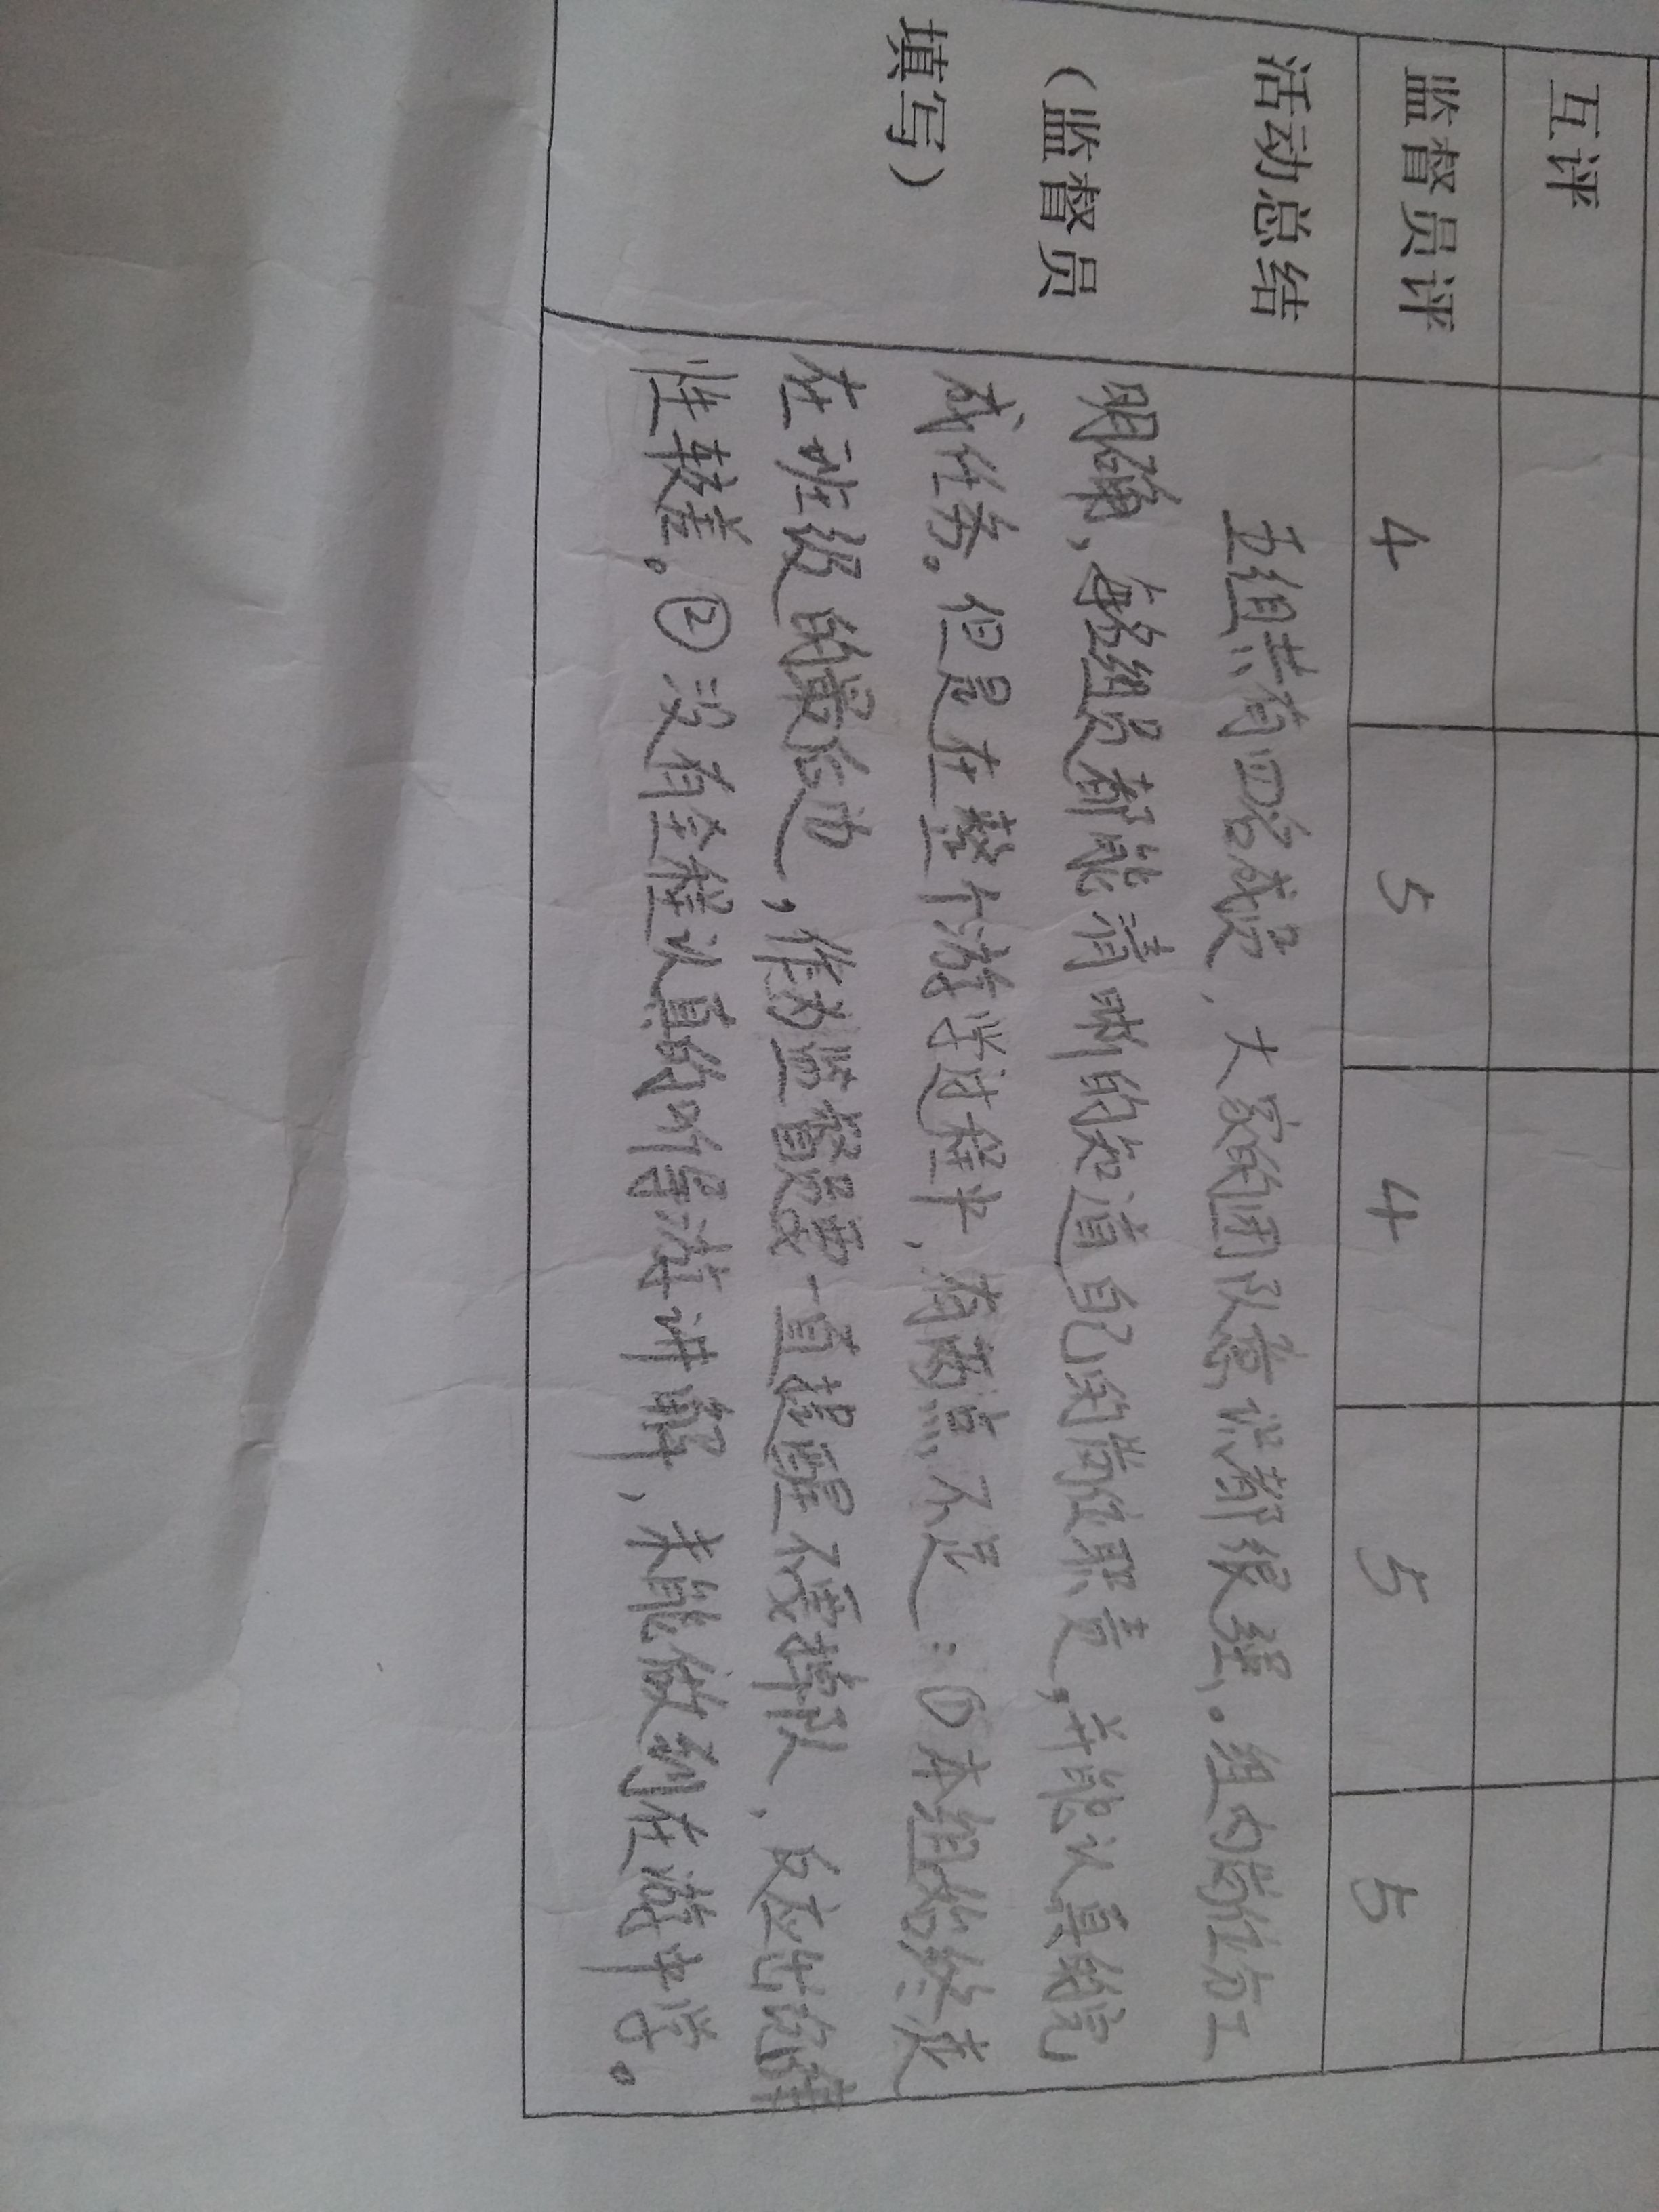 互评
监督员评 4 5 4 5 5
活动总结
（监督员
填写）
五组共有四名成员，大家的团队意识都很强。组内岗位分工
明确，每名组员都能清晰的知道自己的岗位职责，并能认真的完
成任务。但是在整个游学过程中，有两点不足：①本组始终走
在班级的最后边，作为监督员要一直提醒不要掉队，反应出纪律
性较差。②没有全程认真的听导游讲解，未能做到在游中学。